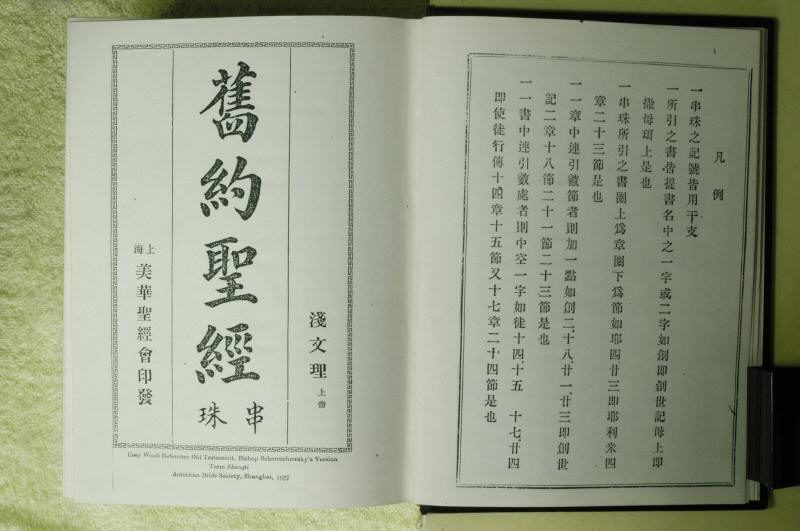 凡例
一串珠之記號皆用干支
一所引之書皆提書名中之一字或二字如創即創世記母上即
撒母耳上是也
一串珠所引之書圈上爲章圈下爲節如耶四、廿三即耶利米四
章二十三節是也
一一章中連引數節者則加一點如創二十八、廿一廿三即創世
記二章十八節二十一節二十三節是也
一一書中連引數處者則中空一字如徒十四、十五 十七、廿四
即使徒行傳十四章十五節又十七章二十四節是也
淺文理 上帝
舊約聖經
串珠
上海 美華聖經會印發
Easy Wenli Reference Old Testament, Bishop Schereschewsky's Version
Term Shangti
American Bible Society, Shanghai, 1927